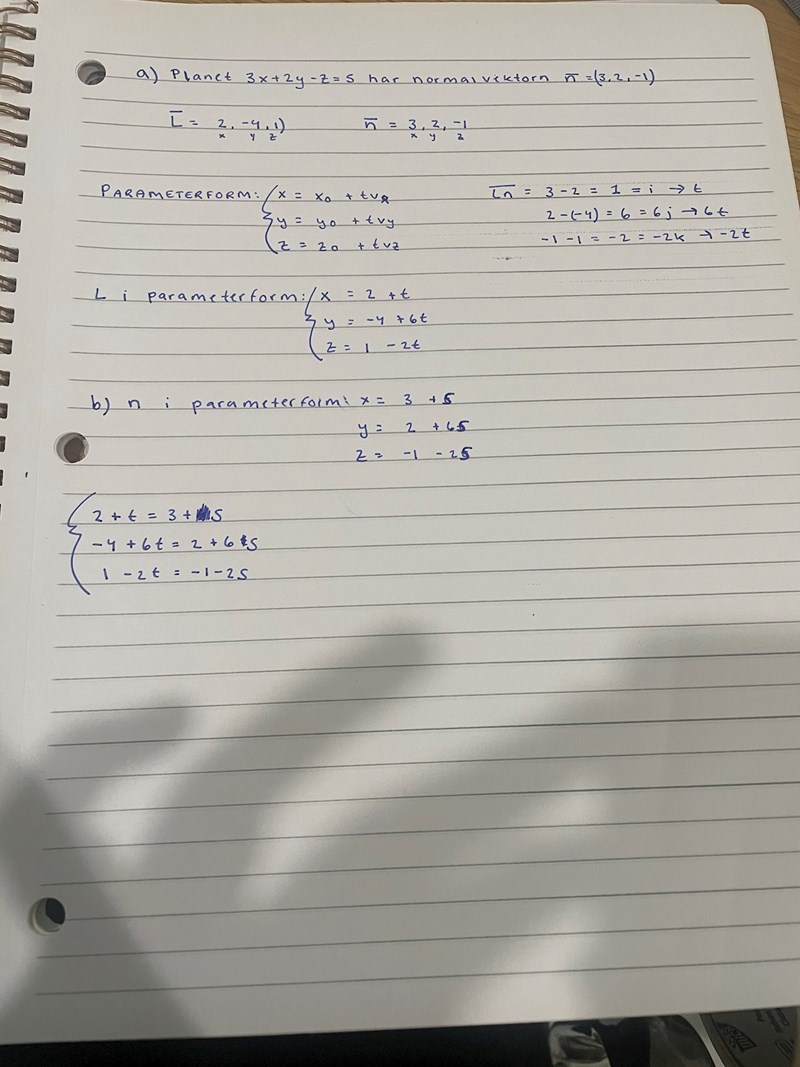 a) Planet 3x+2y-z=5 har normalvektorn n̄ =(3,2,-1)
L̄ = 2,-4,1) n̄ = 3,2,-1
x y z x y z
PARAMETERFORM: { x = x₀ + tvx L̄n̄ = 3-2 = 1 = i → t
y = y₀ + tvy 2-(-4) = 6 = 6j → 6t
z = z₀ + tvz -1-1 = -2 = -2k → -2t
L i parameterform: { x = 2 + t
y = -4 + 6t
z = 1 - 2t
b) n i parameterform: x = 3 + s
y = 2 + 6s
z = -1 - 2s
{ 2 + t = 3 + s
-4 + 6t = 2 + 6s
1 - 2t = -1 - 2s